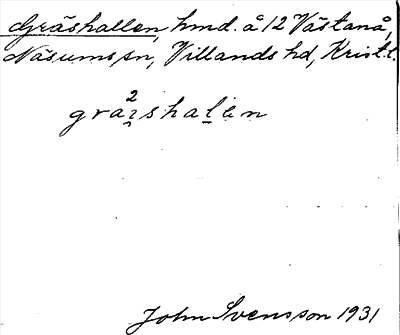 Gräshallen, hmd. å 12 Västanå,
Näsums sn, Villands hd, Krist. l.
2
graꝛshalen
John Svensson 1931